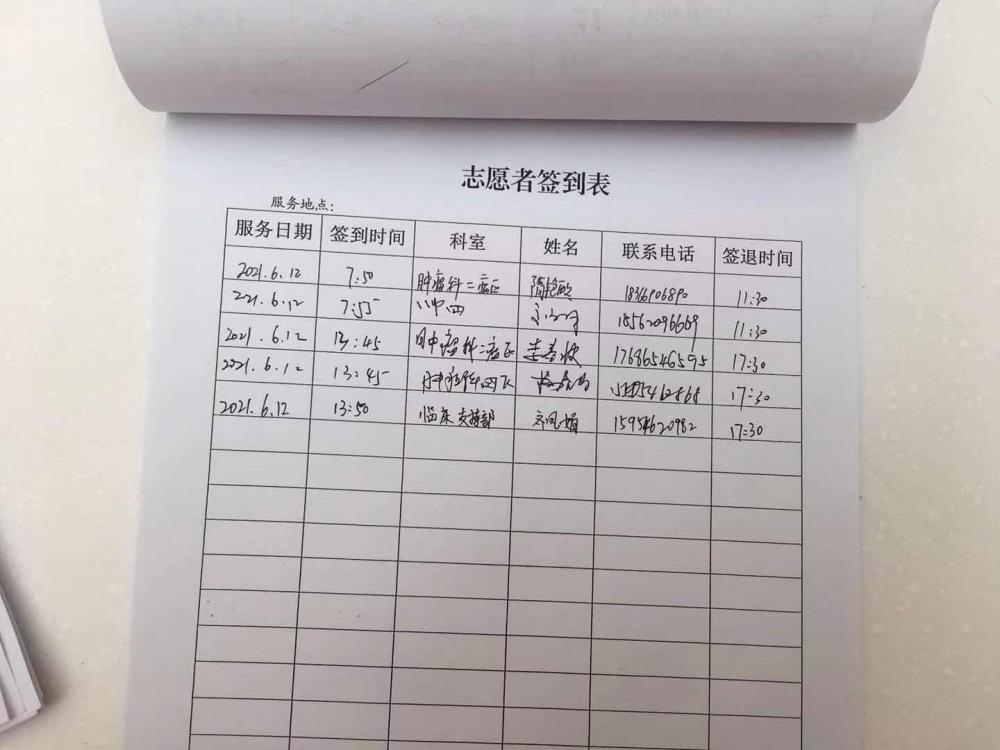 志愿者签到表
服务地点：
服务日期 签到时间 科室 姓名 联系电话 签退时间
2021.6.12 7:50 肿瘤科二病区 隋艳 18366906890 11:30
221.6.12 7:55 18562096669 11:30
2021.6.12 13:45 肿瘤科二病区 李春 17686546595 17:30
2021.6.12 13:45 17:30
2021.6.12 13:50 临床支持部 凤娟 15954620982 17:30